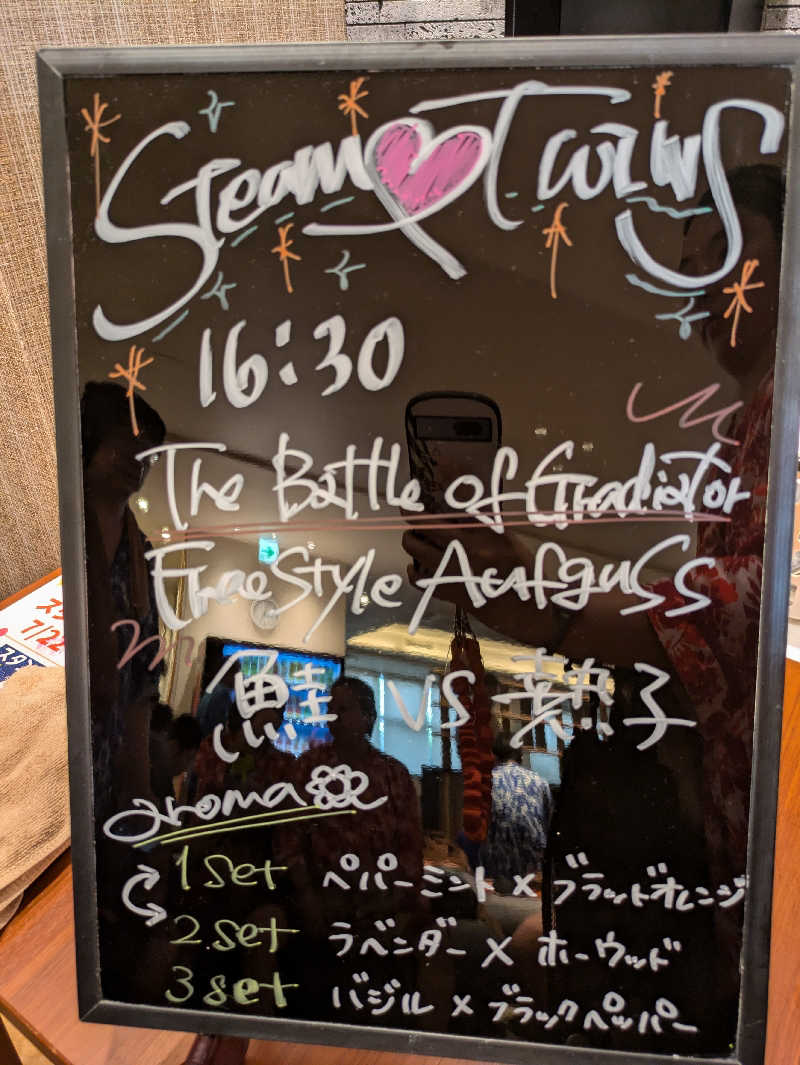 Steam Twins
16:30
The Battle of Gradiator
FreeStyle Aufguss
鮭 vs 熱子
aroma
1set ペパーミント×ブラッドオレンジ
2set ラベンダー×ホーウッド
3set バジル×ブラックペッパー
7/22